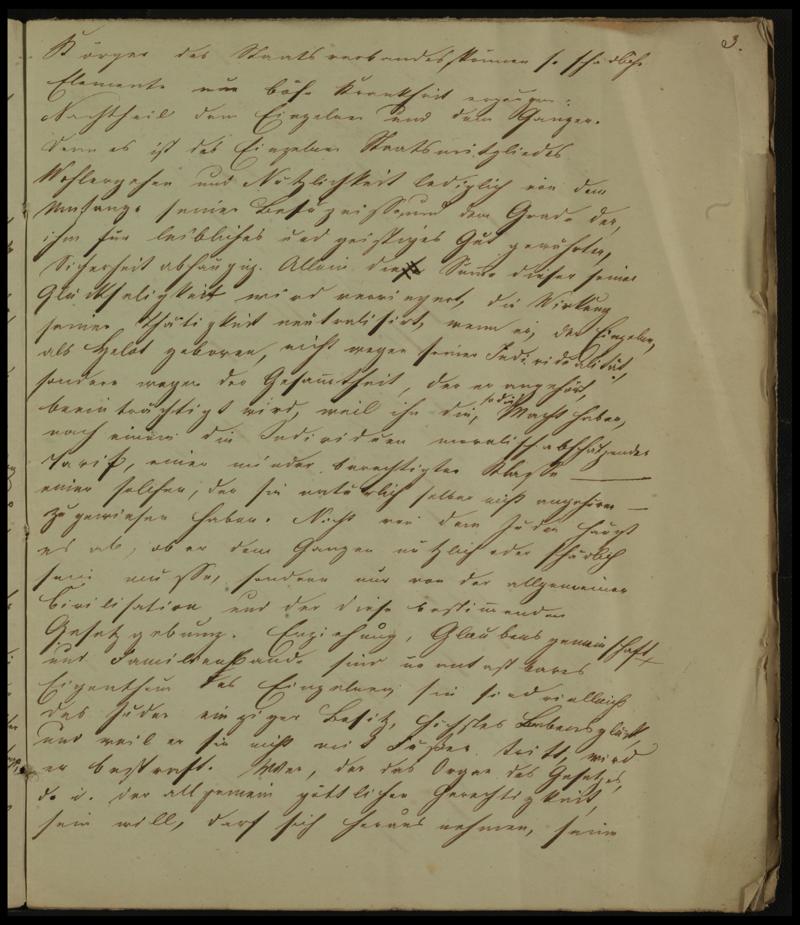 3.
Körper des Staatsverbandes können so schädliche
Elemente nur böse Krankheit erzeugen:
Nachtheil dem Einzelnen und dem Ganzen.
Denn es ist des Einzelnen Staatsmitgliedes
Wohlergehen und Nützlichkeit lediglich von dem
Umfange seiner Befugnisse, und dem Grade der,
ihm für leibliches und geistiges Gut gewährten,
Sicherheit abhängig. Allein die Summe dieser seiner
Glückseligkeit wird verringert, die Wirkung
seiner Thätigkeit neutralisirt, wenn er, der Einzelne,
als Helot geboren, nicht wegen seiner Individualität,
sondern wegen der Gesammtheit, der er angehört,
beeinträchtigt wird, weil ihn die, so die Macht haben,
nach einem die Individuen moralisch abschätzenden
Tarif, einer minder berechtigten Klasse —
einer solchen, der sie natürlich selber nicht angehören —
zugewiesen haben. Nicht von dem Juden hängt
es ab, ob er dem Ganzen nützlich oder schädlich
sein müsse, sondern nur von der allgemeinen
Civilisation und der diese bestimmenden
Gesetzgebung. Erziehung, Glaubensgemeinschaft
und Familienbande sind unantastbares
Eigenthum des Einzelnen; sie sind vielleicht
des Juden einziger Besitz, höchstes Lebensglück,
und weil er sie nicht mit Füßen tritt, wird
er bestraft. Wer, der das Organ des Gesetzes,
d. i. der allgemein göttlichen Gerechtigkeit,
sein will, darf sich heraus nehmen, seine